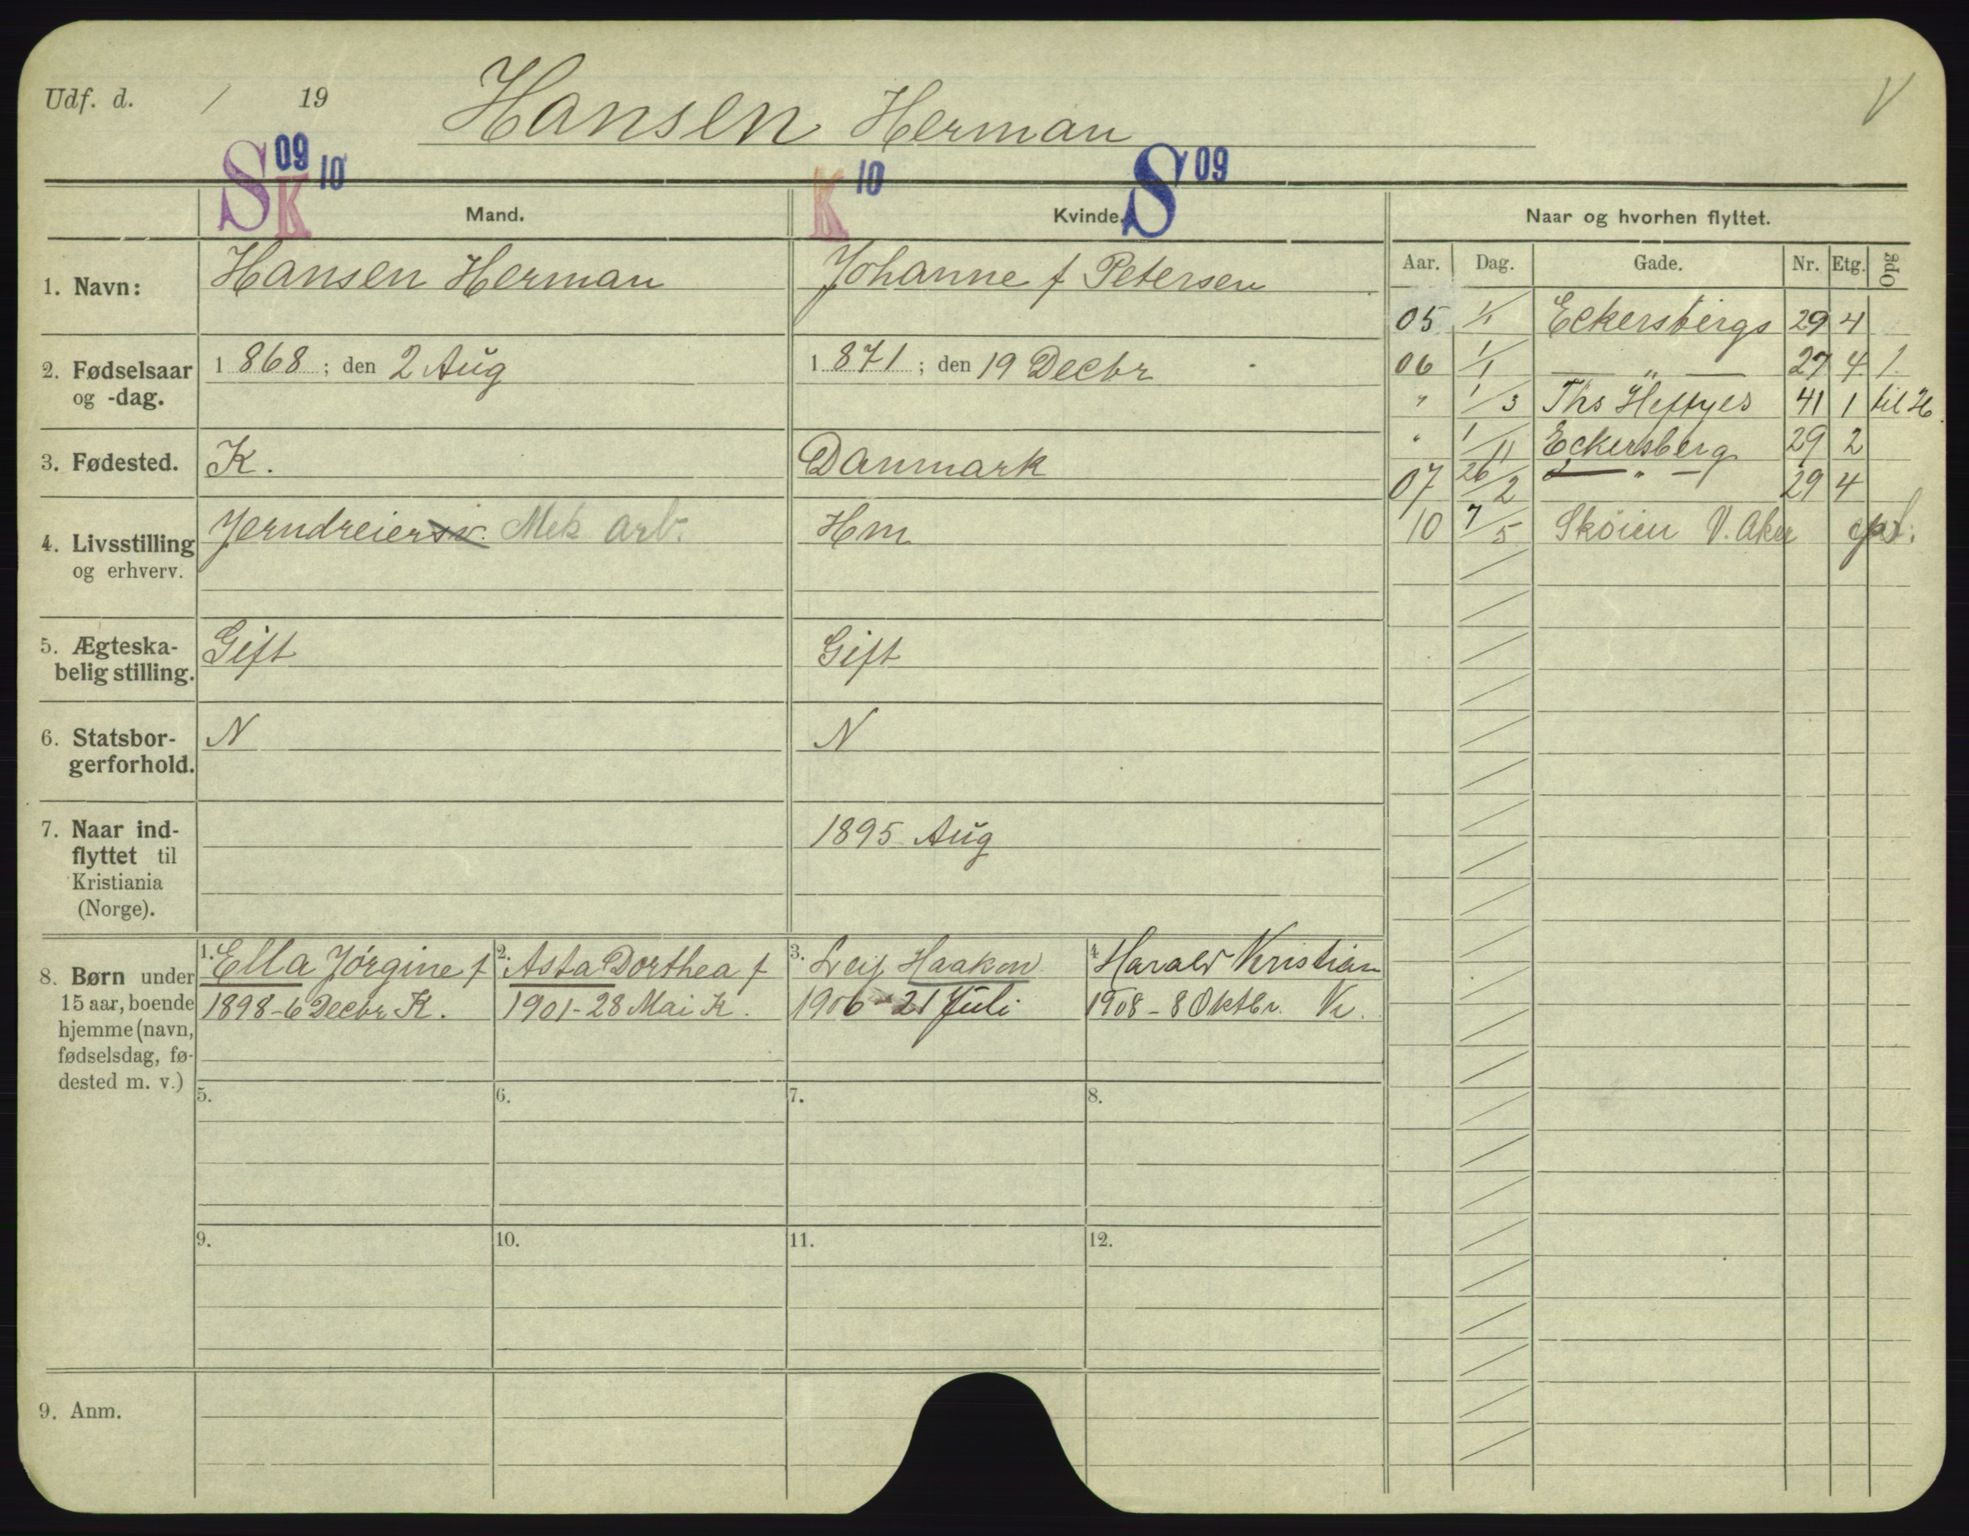 Udf. d. / 19 Hansen Herman V
S 09 K 10 K 10 S 09
Mand. Kvinde. Naar og hvorhen flyttet.
Aar. Dag. Gade. Nr. Etg. Opg
1. Navn: Hansen Herman Johanne f Petersen
05 1/1 Eckersbergs 29 4
2. Fødselsaar 1868; den 2 Aug 1871; den 19 Decbr
og -dag.
06 1/1 — „ — 27 4 1.
" 1/3 Ths Heftyes 41 1 til H.
3. Fødested. K. Danmark
" 1/11 Eckersberg 29 2
07 26/2 — " — 29 4
4. Livsstilling Jerndreiersv. Mek arb. Hm
og erhverv.
10 7/5 Skøien V. Aker
5. Ægteska- Gift Gift
belig stilling.
6. Statsbor- N N
gerforhold.
7. Naar ind- 1895 Aug
flyttet til
Kristiania
(Norge).
8. Børn under
15 aar, boende
hjemme (navn,
fødselsdag, fø-
dested m. v.)
1. Ella Jørgine f
1898 - 6 Decbr K.
2. Asta Dorthea f
1901 - 28 Mai K.
3. Leif Haakon
1906 - 21 Juli
4. Harald Kristian
1908 - 8 Oktbr. Kr.
5. 6. 7. 8.
9. 10. 11. 12.
9. Anm.